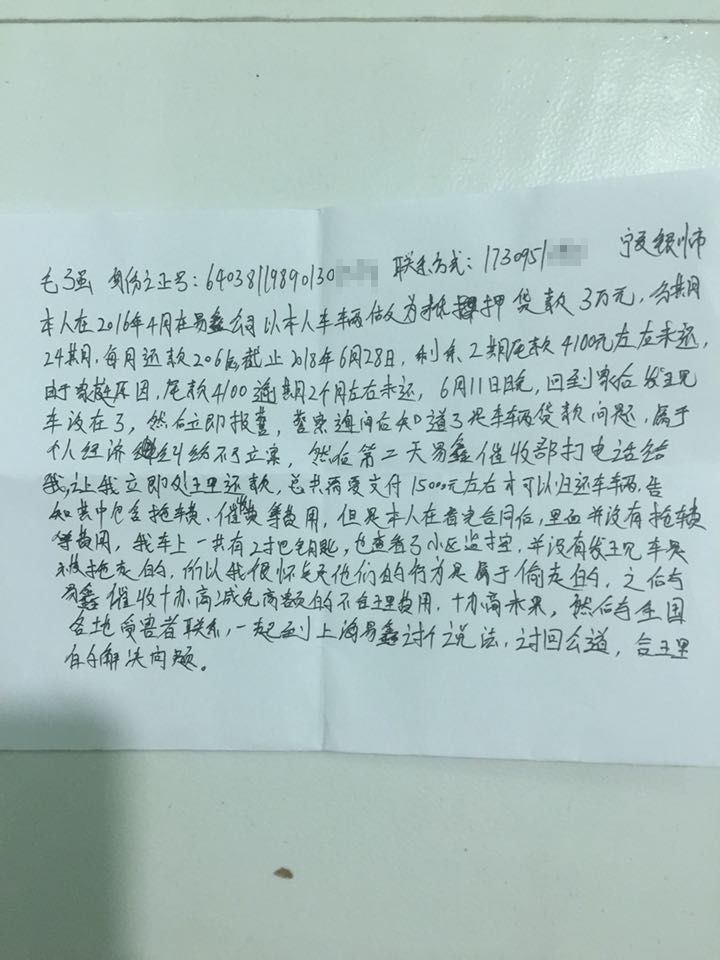 毛强 身份证号:64038119890130 联系方式:1730951 宁夏银川市
本人在2016年4月在易鑫公司以本人车辆估价为抵押贷款3万元,分期
24期,每月还款206 截止2018年6月28日,剩余2期尾款4100元左右未还,
由于家庭原因,尾款4100逾期2个月左右未还,6月11日晚,回到家后发现
车没在了,然后立即报警,警察询问后知道了是车辆贷款问题,属于
个人经济纠纷不予立案,然后第二天易鑫催收部打电话给
我,让我立即处理还款,总共需要支付15000元左右才可以归还车辆,告
知其中包含拖车费、催收费等费用,但是本人在看完合同后,里面并没有拖车费
等费用,我车上一共有2把钥匙,也查看了小区监控,并没有发现车是
被拖走的,所以我很怀疑他们的行为是属于偷走的,之后与
易鑫催收协商减免高额的不合理费用,协商未果,然后与全国
各地受害者联系,一起到上海易鑫讨个说法,讨回公道,合理
的解决问题。